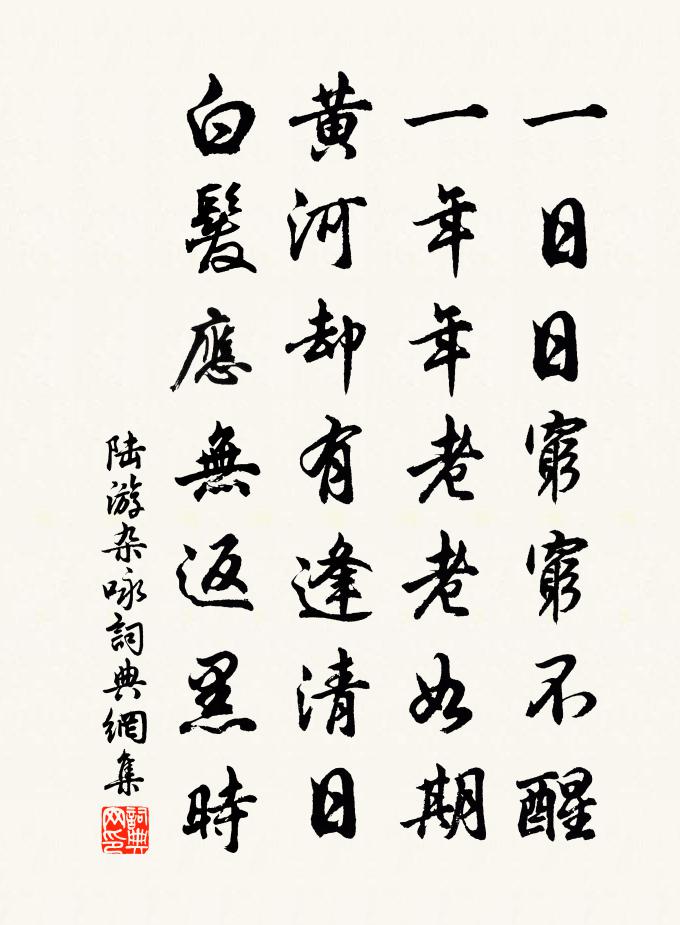 一日日窮窮不醒
一年年老老如期
黃河却有逢清日
白髮應無返黑時
陆游杂咏詞典網集
詞典网印